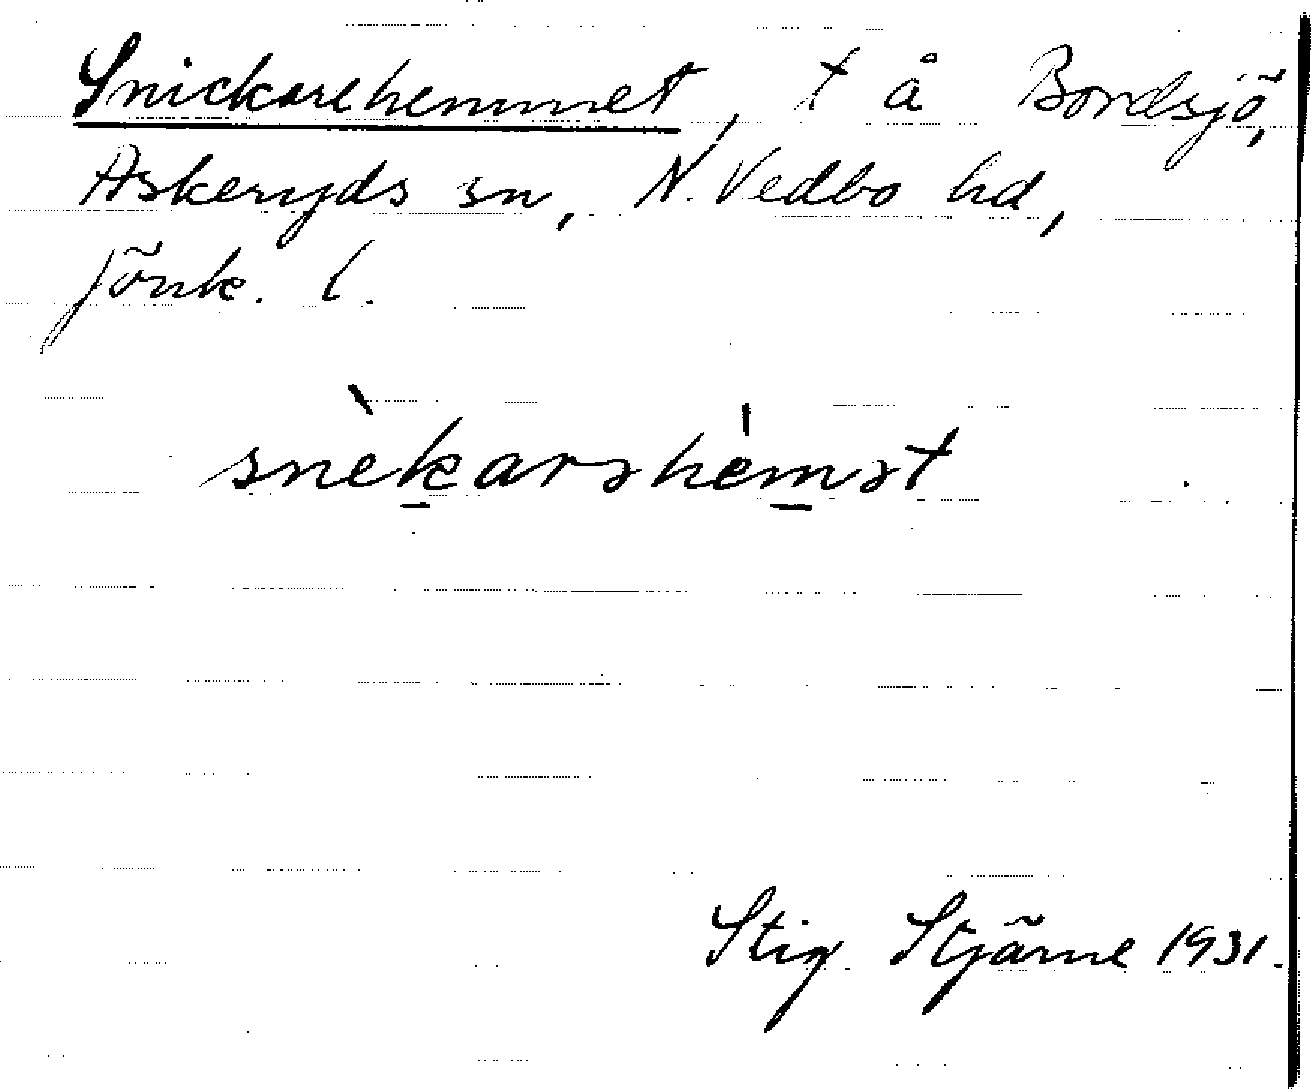 Snickarehemmet, t å Bordsjö,
Askeryds sn, N. Vedbo hd,
Jönk. l.
snèkarəhèmət
Stig Stjärne 1931.